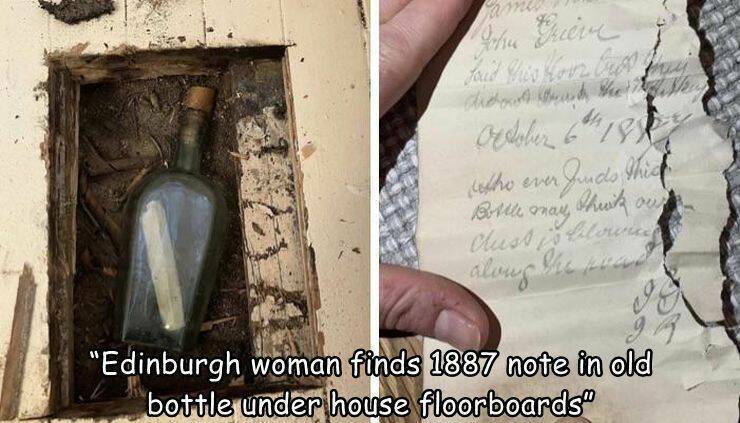 James
John Grieve
laid this floor but they
did not drink the Whisky
October 6th
Who ever finds this
Bottle may think our
dust is blowing
along the road
"Edinburgh woman finds 1887 note in old
bottle under house floorboards"